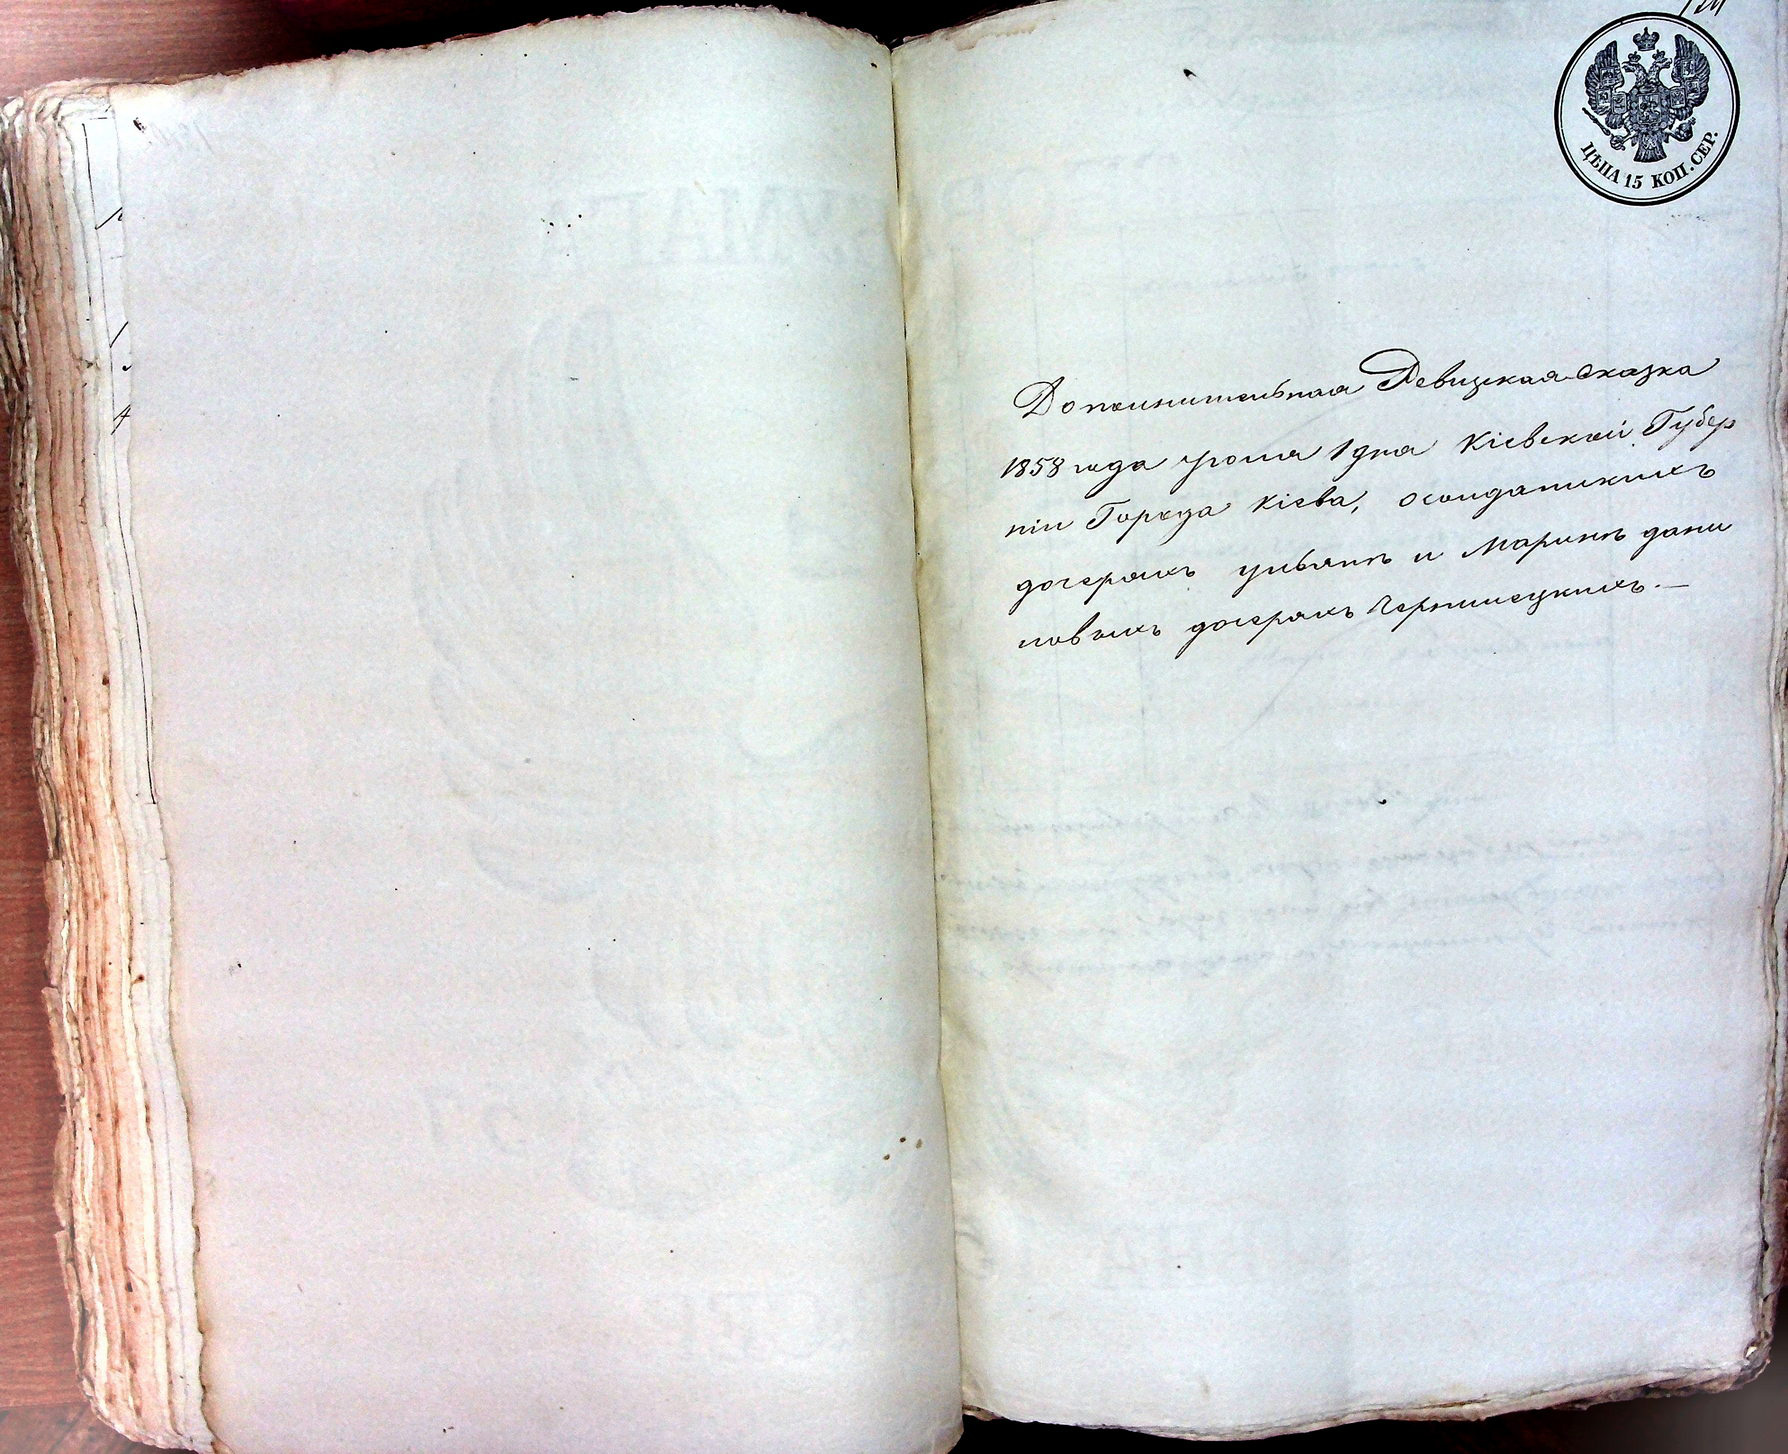 ЦѢНА 15 КОП. СЕР.
Дополнительная Ревизская сказка
1858 года Іюня 1 дня Кіевской Губер
ніи Города Кіева, о солдатскихъ
дочеряхъ Ульянѣ и Маринѣ Дани
ловыхъ дочеряхъ Чернишецкихъ.—